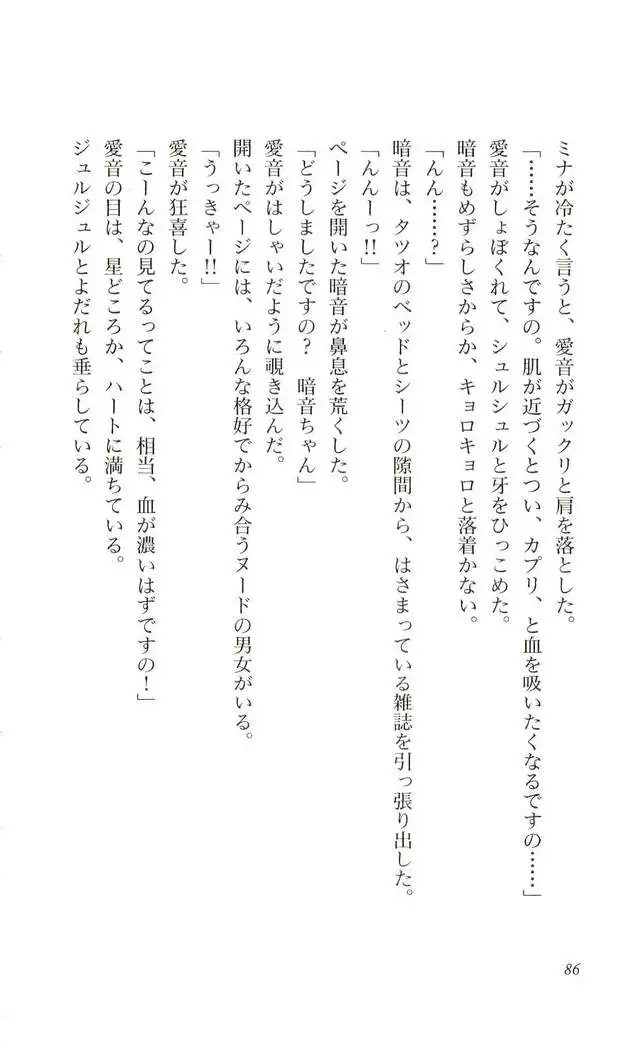 ミナが冷たく言うと、愛音がガックリと肩を落とした。
「……そうなんですの。肌が近づくとつい、カプリ、と血を吸いたくなるですの……」
愛音がしょぼくれて、シュルシュルと牙をひっこめた。
暗音もめずらしさからか、キョロキョロと落着かない。
「んん……？」
暗音は、タツオのベッドとシーツの隙間から、はさまっている雑誌を引っ張り出した。
「んんーっ!!」
ページを開いた暗音が鼻息を荒くした。
「どうしましたですの？　暗音ちゃん」
愛音がはしゃいだように覗き込んだ。
開いたページには、いろんな格好でからみ合うヌードの男女がいる。
「うっきゃー!!」
愛音が狂喜した。
「こーんなの見てるってことは、相当、血が濃いはずですの！」
愛音の目は、星どころか、ハートに満ちている。
ジュルジュルとよだれも垂らしている。
86